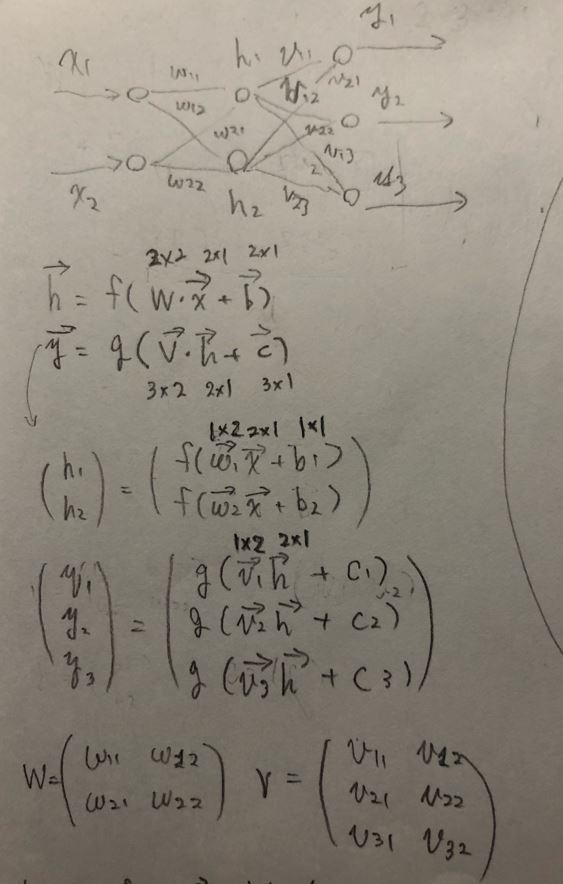 y₁
x₁ w₁₁ h₁ v₁₁
w₁₂ v₁₂ v₂₁ y₂
w₂₁ v₂₂
v₁₃
x₂ w₂₂ h₂ v₂₃ y₃
2×2 2×1 2×1
h⃗ = f( W·x⃗ + b⃗)
y⃗ = g( V⃗·h⃗ + c⃗)
3×2 2×1 3×1
1×2 2×1 1×1
(h₁ h₂) = (f(w⃗₁x⃗ + b₁)
f(w⃗₂x⃗ + b₂))
1×2 2×1
(y₁ y₂ y₃) = (g (v⃗₁h⃗ + c₁)
g (v⃗₂h⃗ + c₂)
g (v⃗₃h⃗ + c₃))
W=(w₁₁ w₁₂ V = (v₁₁ v₁₂
w₂₁ w₂₂) v₂₁ v₂₂
v₃₁ v₃₂)